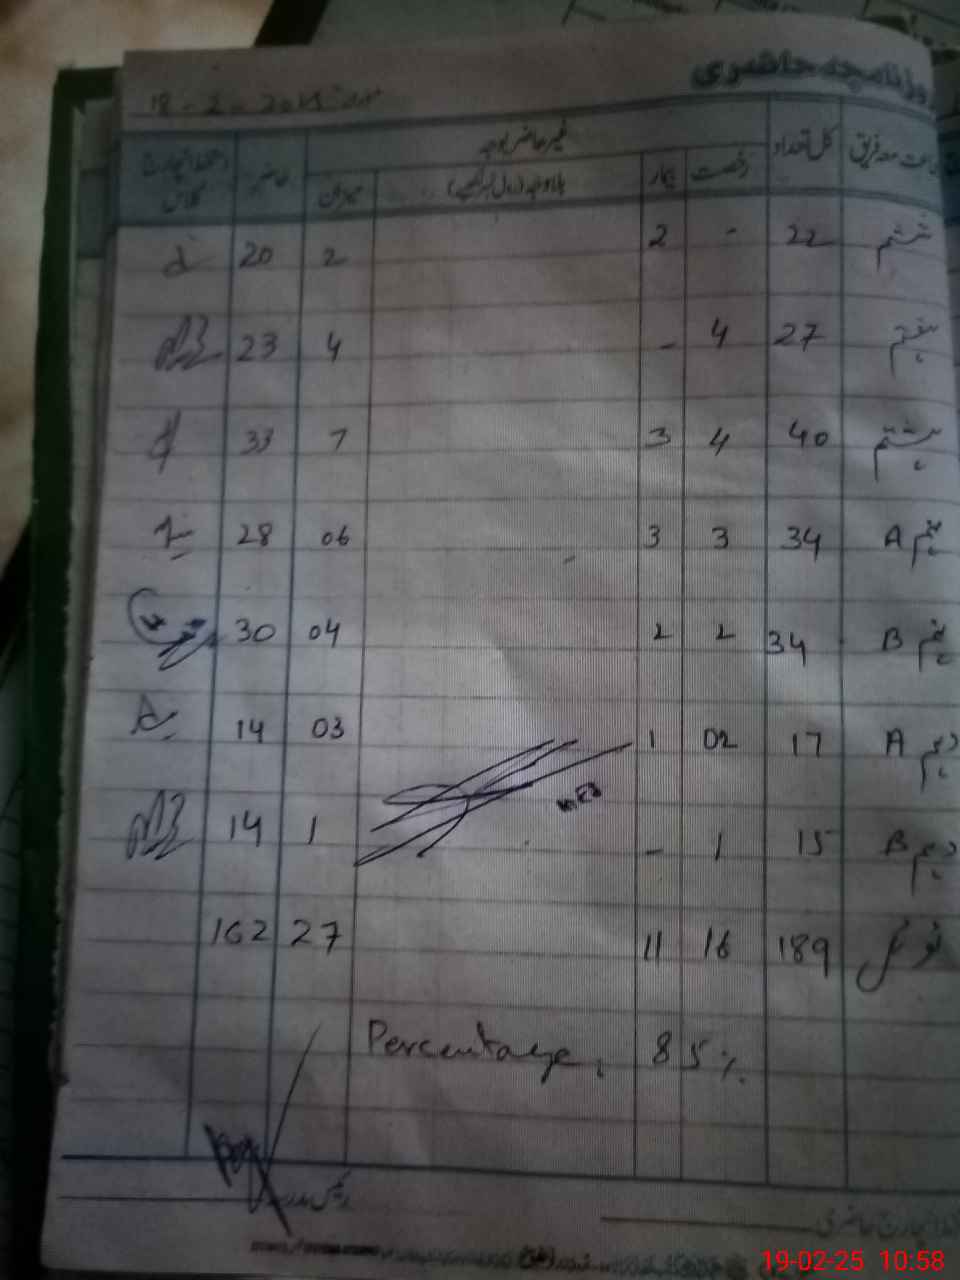 روزنامچہ حاضری
مورخہ 18-2-2025
جماعت معہ فریق کل تعداد غیر حاضر بوجہ حاضر دستخط انچارج کلاس
رخصت بیمار بلاوجہ (رول نمبر لکھیے) میزان
ششم 22 - 2 2 20
ہفتم 27 4 - 4 23
ہشتم 40 4 3 7 33
نہم A 34 3 3 06 28
نہم B 34 2 2 04 30
دہم A 17 02 1 03 14
دہم B 15 1 - 1 14
ٹوٹل 189 16 11 27 162
Percentage, 85%
19-02-25 10:58